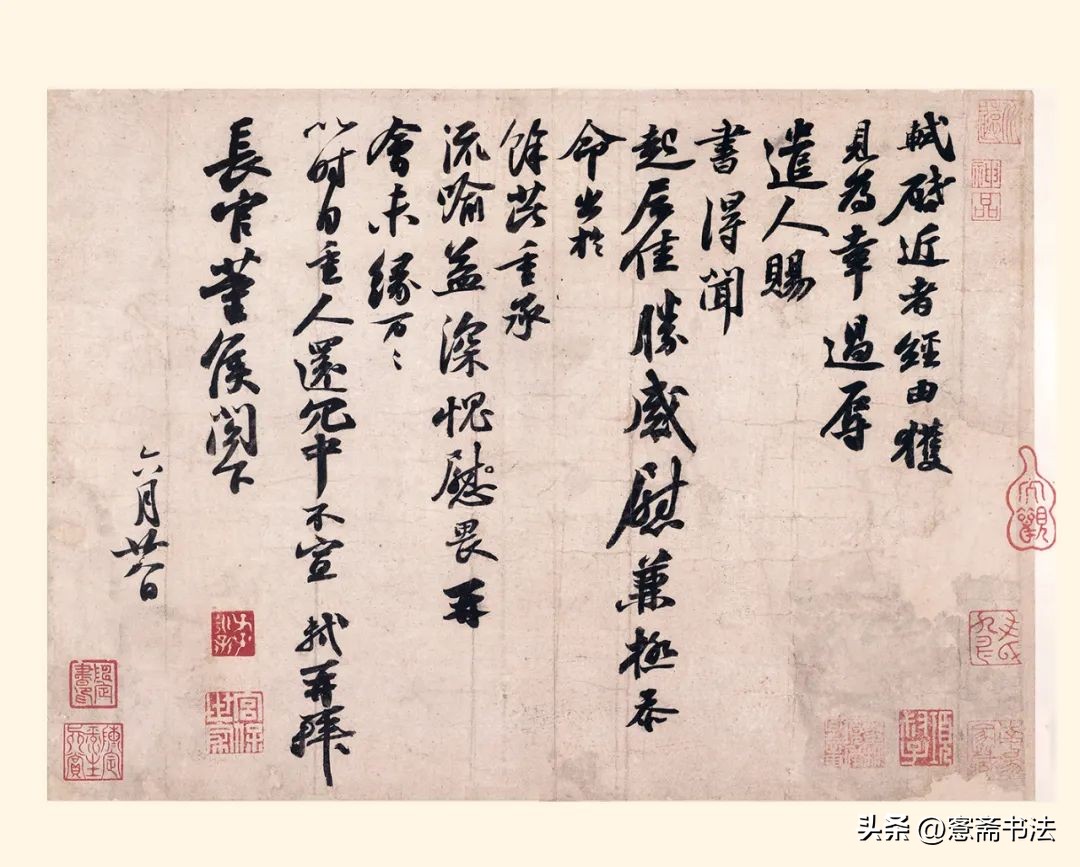 軾啓近者經由獲
見為幸過辱
遣人賜
書得聞
起居佳勝感慰兼極忝
命出於
餘芘重承
流喻益深愧慰畏再
會未緣万〻
以时自重人還冗中不宣 軾再拜
長官董侯閤下
六月廿八日
神品
头条 @愙斋书法